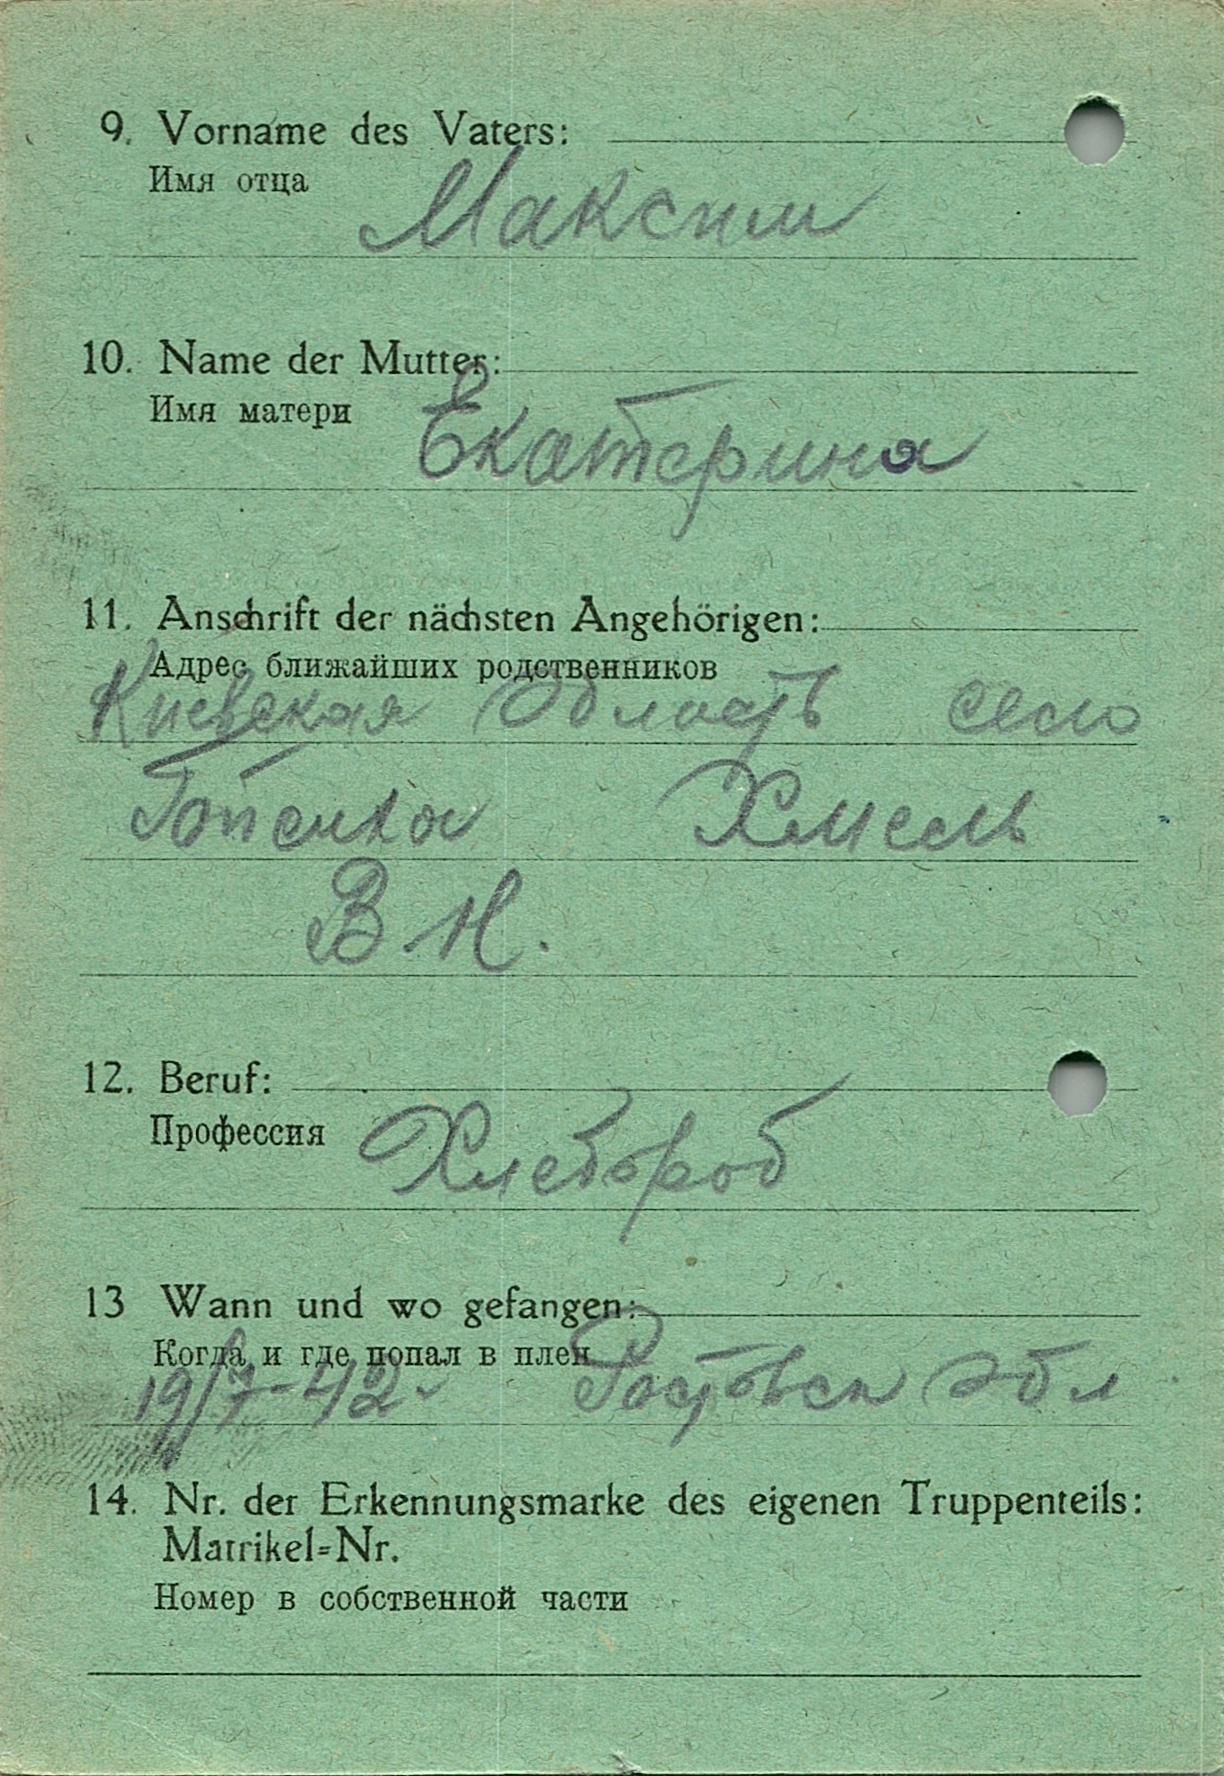 9. Vorname des Vaters:
Имя отца
Максим
10. Name der Mutter:
Имя матери
Екатерина
11. Anschrift der nächsten Angehörigen:
Адрес ближайших родственников
Киевская область село
Хмель
В. Н.
12. Beruf:
Профессия
Хлебороб
13 Wann und wo gefangen:
Когда и где попал в плен
19/7-42 Ростовск обл
14. Nr. der Erkennungsmarke des eigenen Truppenteils:
Matrikel=Nr.
Номер в собственной части